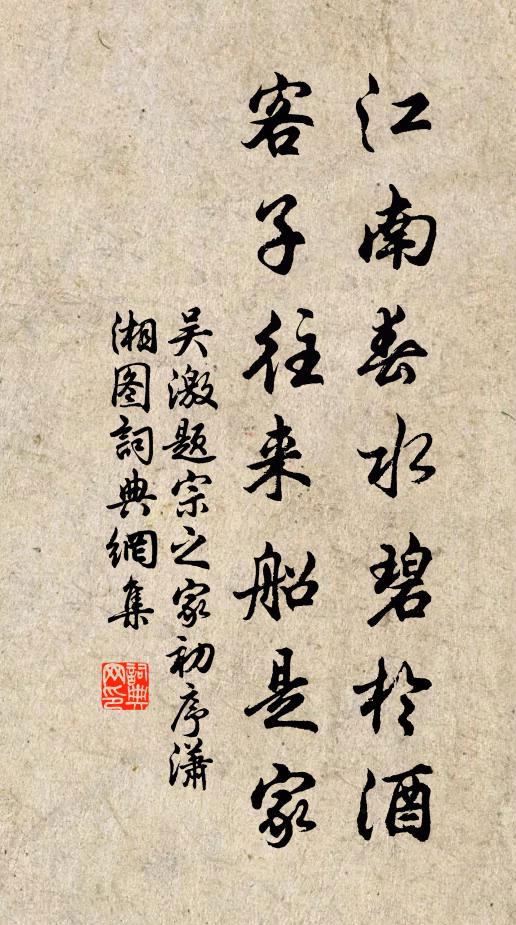 江南春水碧於酒
客子往来船是家
吴激題宗之家初序瀟
湘图詞典網集
詞典
网印